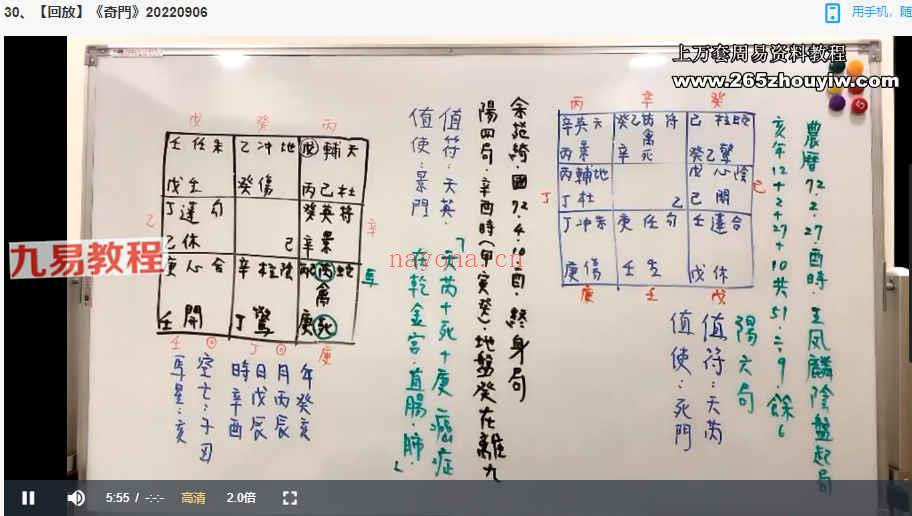 30、【回放】《奇門》20220906
用手机，随
上万套周易资料教程
www.265zhouyiw.com
九易教程
nayona.cn
農曆72.2.27.酉時.王凤麟陰盤起局
亥年12+2+27+10共51÷9餘6
陽六局
值符:天芮
值使:死門
丙
辛
癸
辛英天
丙景
癸乙芮符
禽
辛死
己柱蛇
癸乙驚
丁
丙輔地
丁杜
乙
戊心陰
己開
己
丁冲朱
庚傷
庚任勾
壬生
壬蓬合
戊休
庚
壬
戊
國72.4.10酉.終身局
陽四局.辛酉時(甲寅癸).地盤癸在離九
值符:天英.
值使:景門
「天芮+死+庚 癌症
在乾金宮.直腸.肺.」
戊
癸
丙
壬任朱
戊生
乙冲地
癸傷
戊輔天
乙丙杜
乙
丁蓬勾
乙休
己
癸英符
辛景
辛
庚心合
壬開
辛柱陰
丁驚
丙芮蛇
禽
庚死
馬
壬
丁
庚
年癸亥
月丙辰
日戊辰
時辛酉
空亡:子丑
馬星:亥
5:55 / -:-
高清
2.0倍